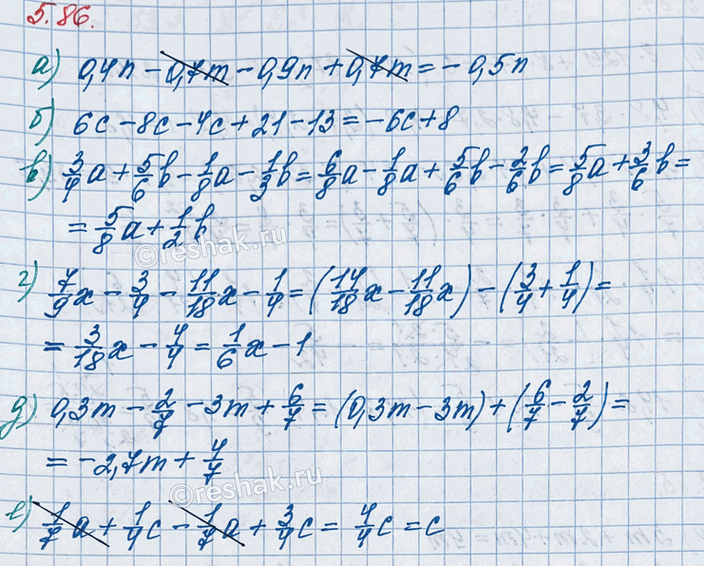 5.86.
а) 0,4n - 0,7m - 0,9n + 0,7m = -0,5n
б) 6c - 8c - 4c + 21 - 13 = -6c + 8
в) 3/4 a + 5/6 b - 1/8 a - 1/3 b = 6/8 a - 1/8 a + 5/6 b - 2/6 b = 5/8 a + 3/6 b =
= 5/8 a + 1/2 b
©reshak.ru
г) 7/9 x - 3/4 - 11/18 x - 1/4 = (14/18 x - 11/18 x) - (3/4 + 1/4) =
= 3/18 x - 4/4 = 1/6 x - 1
д) 0,3m - 2/7 - 3m + 6/7 = (0,3m - 3m) + (6/7 - 2/7) =
= -2,7m + 4/7
©reshak.ru
е) 1/7 a + 1/4 c - 1/7 a + 3/4 c = 4/4 c = c